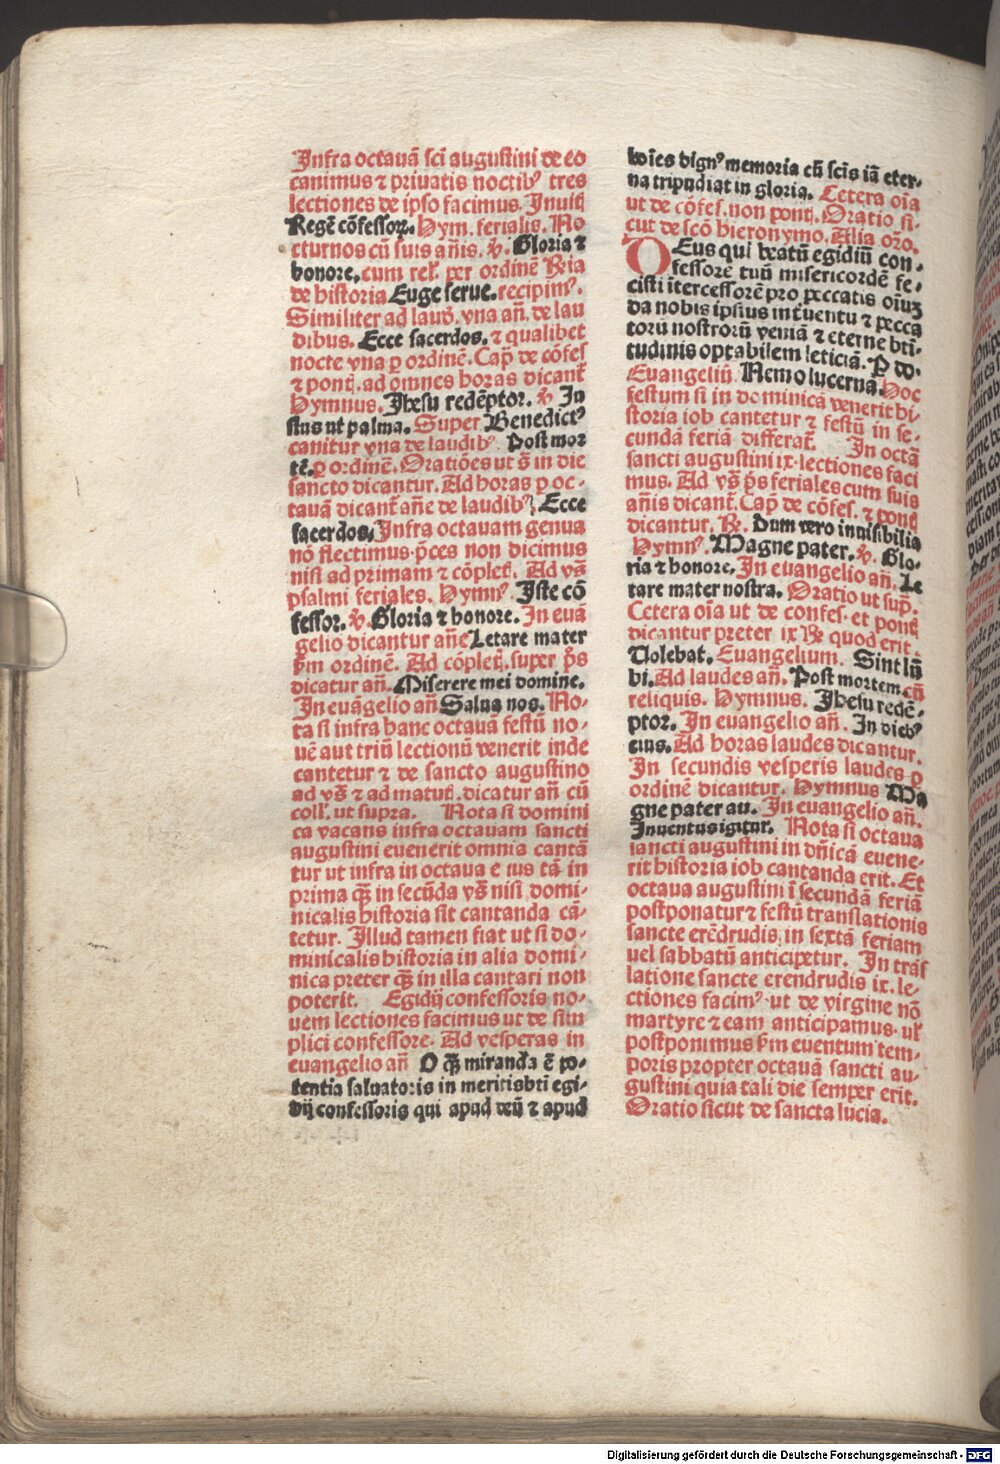 Infra octauā sci augustini de eo
canimus ⁊ priuatis noctibꝰ tres
lectiones de ipso facimus. Inuitͭ
Regē cōfessoꝝ. Hym. ferialis. No
cturnos cū suis añis. v̄. Gloria ⁊
honore. cum rel̓. per ordinē Ria
de historia Euge serue. recipimꝰ.
Similiter ad laud̓. vna añ. de lau
dibus. Ecce sacerdos. ⁊ qualibet
nocte vna ꝑ ordinē. Cap̄. de cōfes
⁊ pontͥ. ad omnes horas dicant̄
Hymnus. Jhesu redēptor. v̄ Iu
stus ut palma. Super Benedictꝰ
canitur vna de laudibꝰ. Post mor
tē. ꝑ ordinē. Oratiōes ut ŝ in die
sancto dicantur. Ad horas ꝑ oc-
tauā dicant̄ añe de laudibꝰ. Ecce
sacerdos. Infra octauam genua
nō flectimus. p̄ces non dicimus
nisi ad primam ⁊ cōplet̓. Ad vŝ
psalmi feriales. Hymnꝰ. Iste cō
fessor. v̄. Gloria ⁊ honore. In euā
gelio dicantur añe Letare mater
ẜm ordinē. Ad cōplet̓. super p̄s
dicatur añ. Miserere mei domine.
In euāgelio añ Salua nos. No-
ta si infra hanc octauā festū no-
uē aut triū lectionū venerit inde
cantetur ⁊ de sancto augustino
ad vŝ ⁊ ad matut̓. dicatur añ cū
coll̓. ut supra. Nota si domini
ca vacans infra octauam sancti
augustini euenerit omnia cantā
tur ut infra in octaua e ius tā in
prima q̄ꝫ in secūda vŝ nisi domi-
nicalis historia sit cantanda cā-
tetur. Illud tamen fiat ut si do-
minicalis historia in alia domi-
nica preter q̄ꝫ in illa cantari non
poterit. Egidij confessoris no-
uem lectiones facimus ut de sim
plici confessore. Ad vesperas in
euangelio añ O q̄ꝫ miranda ē po-
tentia saluatoris in meritis bti egi-
dij confessoris qui apud deū ⁊ apud
hoīes dignꝰ memoria cū scīs iā eter-
na tripudiat in gloria. Cetera oīa
ut de cōfes. non pontͥ. Oratio si-
cut de scō hieronymo. Alia oro.
DEus qui beatū egidiū con-
fessorē tuū misericordē fe-
cisti itercessorē pro peccatis oīuꝫ
da nobis ipsius inťuentu ⁊ pecca
torū nostrorū veniā ⁊ eterne bti-
tudinis optabilem leticiā. P do.
Euangeliū. Nemo lucerna. Hoc
festum si in dominica venerit hi-
storia iob cantetur ⁊ festū in se-
cundā feriā differat̄. In octā
sancti augustini ix. lectiones faci
mus. Ad vŝ p̄s feriales cum suis
añis dicant̄. Cap̄. de cōfes. ⁊ pontͥ
dicantur. R̄. Dum vero inuisibilia
Hymnꝰ. Magne pater. v̄. Glo-
ria ⁊ honore. In euangelio añ. Le
tare mater nostra. Oratio ut sup̄.
Cetera oīa ut de confes. et pontͥ
dicantur preter ix R̄ quod erit.
Uolebat. Euangelium. Sint lū
bi. Ad laudes añ. Post mortem. cū
reliquis. Hymnus. Jhesu redē-
ptor. In euangelio añ. In diebꝰ
eius. Ad horas laudes dicantur.
In secundis vesperis laudes ꝑ
ordinē dicantur. Hymnus Ma
gne pater au. In euangelio añ.
Inuentus igitur. Nota si octaua
sancti augustini in dñica euene-
rit historia iob cantanda erit. Et
octaua augustini ī secundā feriā
postponatur ⁊ festū translationis
sancte erēdrudis, in sextā feriam
uel sabbatū anticipetur. In trās
latione sancte erendrudis ix. le-
ctiones facimꝰ. ut de virgine nō
martyre ⁊ eam anticipamus. ul̓
postponimus ẜm euentum tem-
poris propter octauā sancti au-
gustini quia tali die semper erit.
Oratio sicut de sancta lucia.
Digitalisierung gefördert durch die Deutsche Forschungsgemeinschaft - DFG